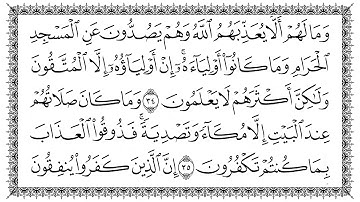 وَمَا لَهُمْ أَلَّا يُعَذِّبَهُمُ ٱللَّهُ وَهُمْ يَصُدُّونَ عَنِ ٱلْمَسْجِدِ
ٱلْحَرَامِ وَمَا كَانُوٓا۟ أَوْلِيَآءَهُۥٓ ۚ إِنْ أَوْلِيَآؤُهُۥٓ إِلَّا ٱلْمُتَّقُونَ
وَلَـٰكِنَّ أَكْثَرَهُمْ لَا يَعْلَمُونَ ٣٤ وَمَا كَانَ صَلَاتُهُمْ
عِندَ ٱلْبَيْتِ إِلَّا مُكَآءً وَتَصْدِيَةً ۚ فَذُوقُوا۟ ٱلْعَذَابَ
بِمَا كُنتُمْ تَكْفُرُونَ ٣٥ إِنَّ ٱلَّذِينَ كَفَرُوا۟ يُنفِقُونَ